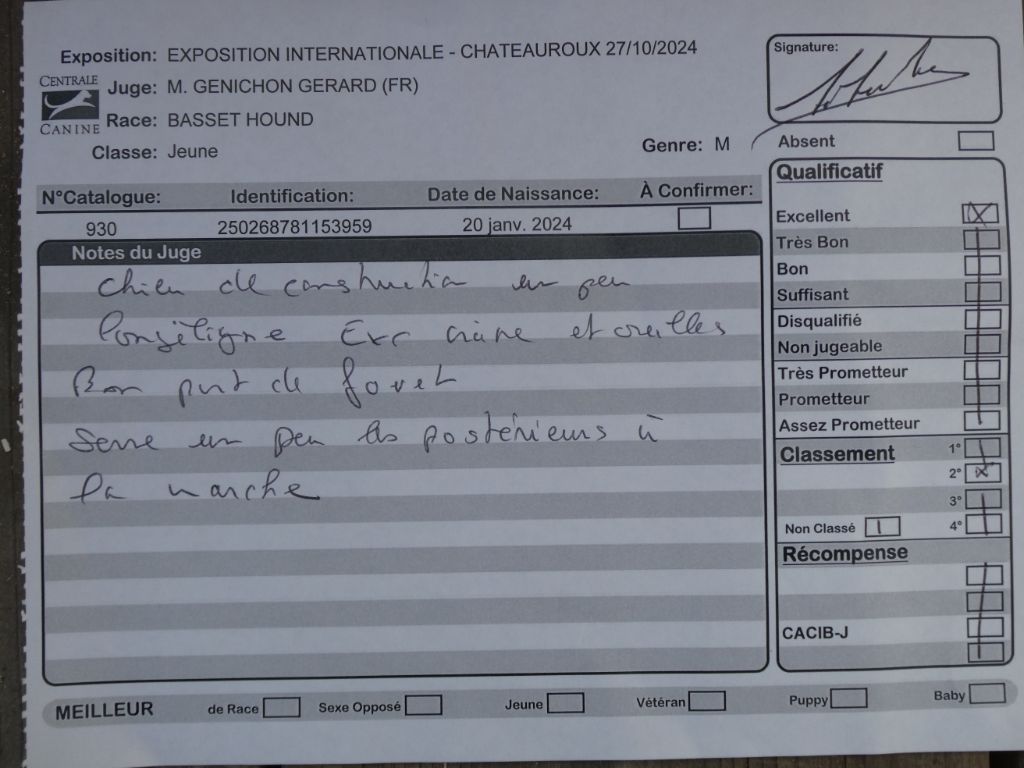 Exposition: EXPOSITION INTERNATIONALE - CHATEAUROUX 27/10/2024
CENTRALE CANINE
Juge: M. GENICHON GERARD (FR)
Race: BASSET HOUND
Classe: Jeune
Genre: M
Signature:
Absent
N°Catalogue: Identification: Date de Naissance: À Confirmer:
930 250268781153959 20 janv. 2024
Notes du Juge
Chien de construction un peu
longiligne Exc crâne et oreilles
Bon port de fouet
Serre un peu les postérieurs à
la marche
Qualificatif
Excellent
Très Bon
Bon
Suffisant
Disqualifié
Non jugeable
Très Prometteur
Prometteur
Assez Prometteur
Classement
1°
2°
3°
Non Classé 4°
Récompense
CACIB-J
MEILLEUR de Race Sexe Opposé Jeune Vétéran Puppy Baby